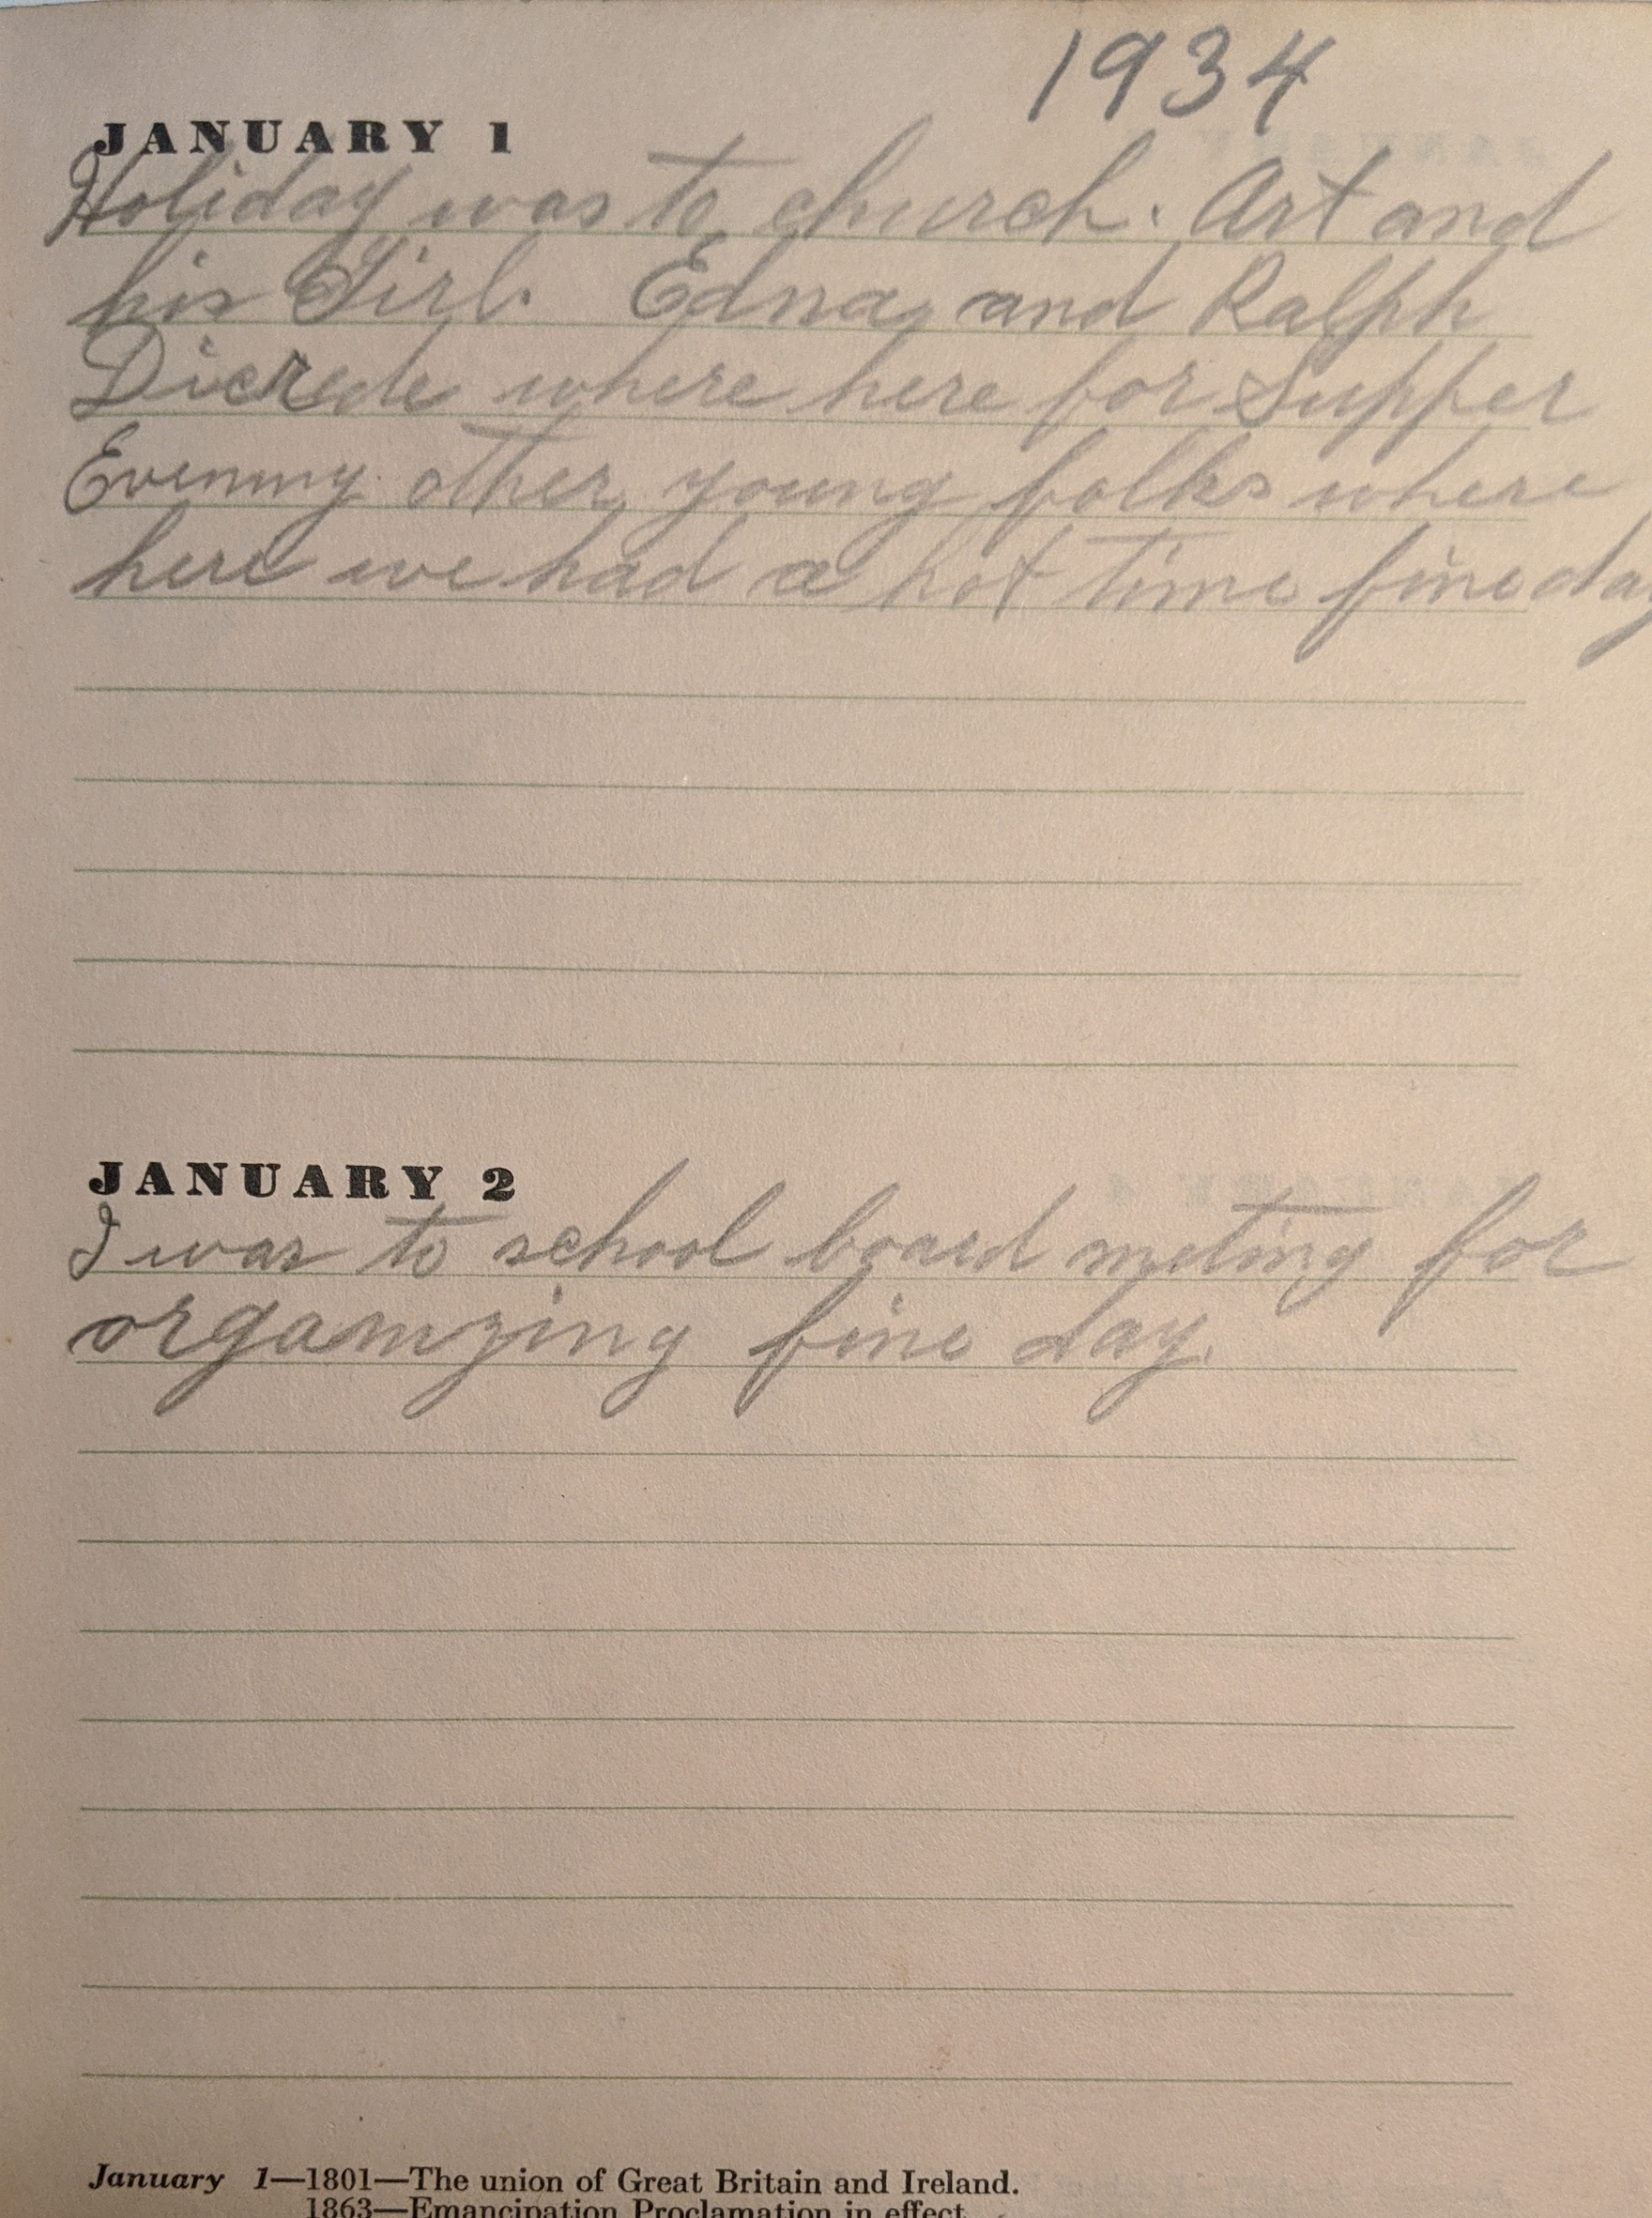 1934
JANUARY 1
Holiday was to church. Art and
his Girl. Edna and Ralph
where here for Supper
Evening other young folks where
here we had a hot time fine day
JANUARY 2
I was to school board meting for
organizing fine day.
January 1—1801—The union of Great Britain and Ireland.
1863—Emancipation Proclamation in effect.